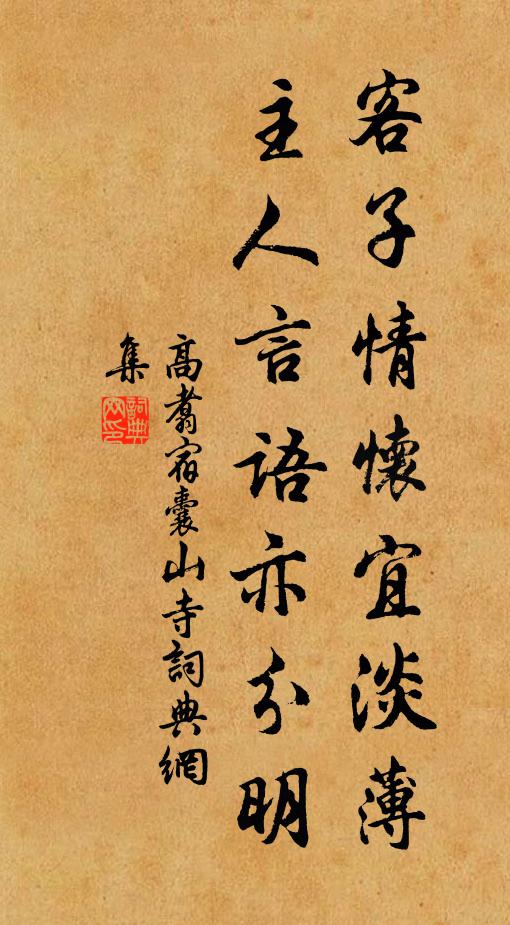 客子情懷宜淡薄
主人言語亦分明
高翥宿囊山寺詞典網
集
詞典網印